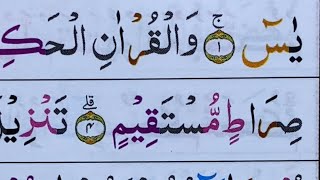 يٰسٓ ۚ ١ وَالْقُرْاٰنِ الْحَكِ
صِرَاطٍ مُّسْتَقِيْمٍ ۗ ٤ تَنْزِيْ